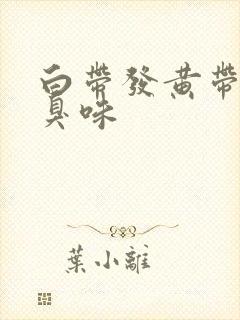 白帶發黃帶
臭味
葉小離